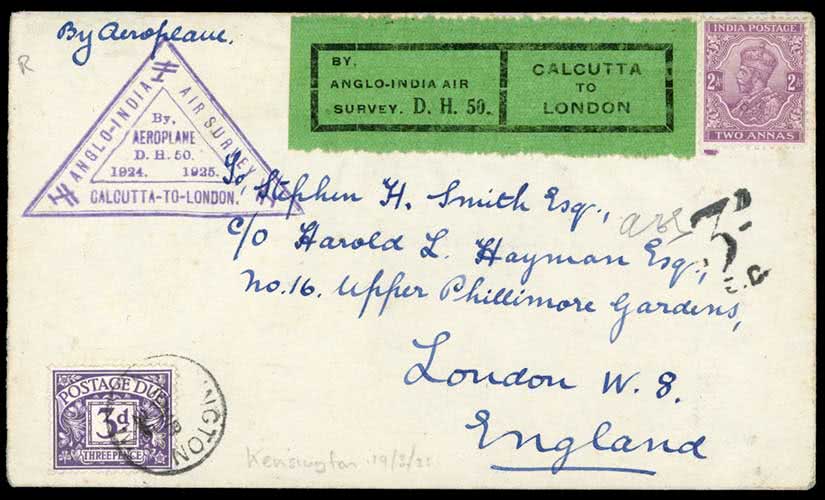 By Aeroplane.
R
BY.
ANGLO-INDIA AIR
SURVEY. D. H. 50.
CALCUTTA
TO
LONDON
INDIA POSTAGE
2As 2As
TWO ANNAS
ANGLO-INDIA
AIR SURVEY
By.
AEROPLANE
D. H. 50.
1924. 1925.
CALCUTTA-TO-LONDON.
To,
Stephen H. Smith Esq.,
c/o Harold L. Hayman Esq.,
No. 16. Upper Phillimore Gardens,
London W. 8.
England
3D
E.C
POSTAGE DUE
3d
THREE PENCE
INGTON
Kensington 19/3/25